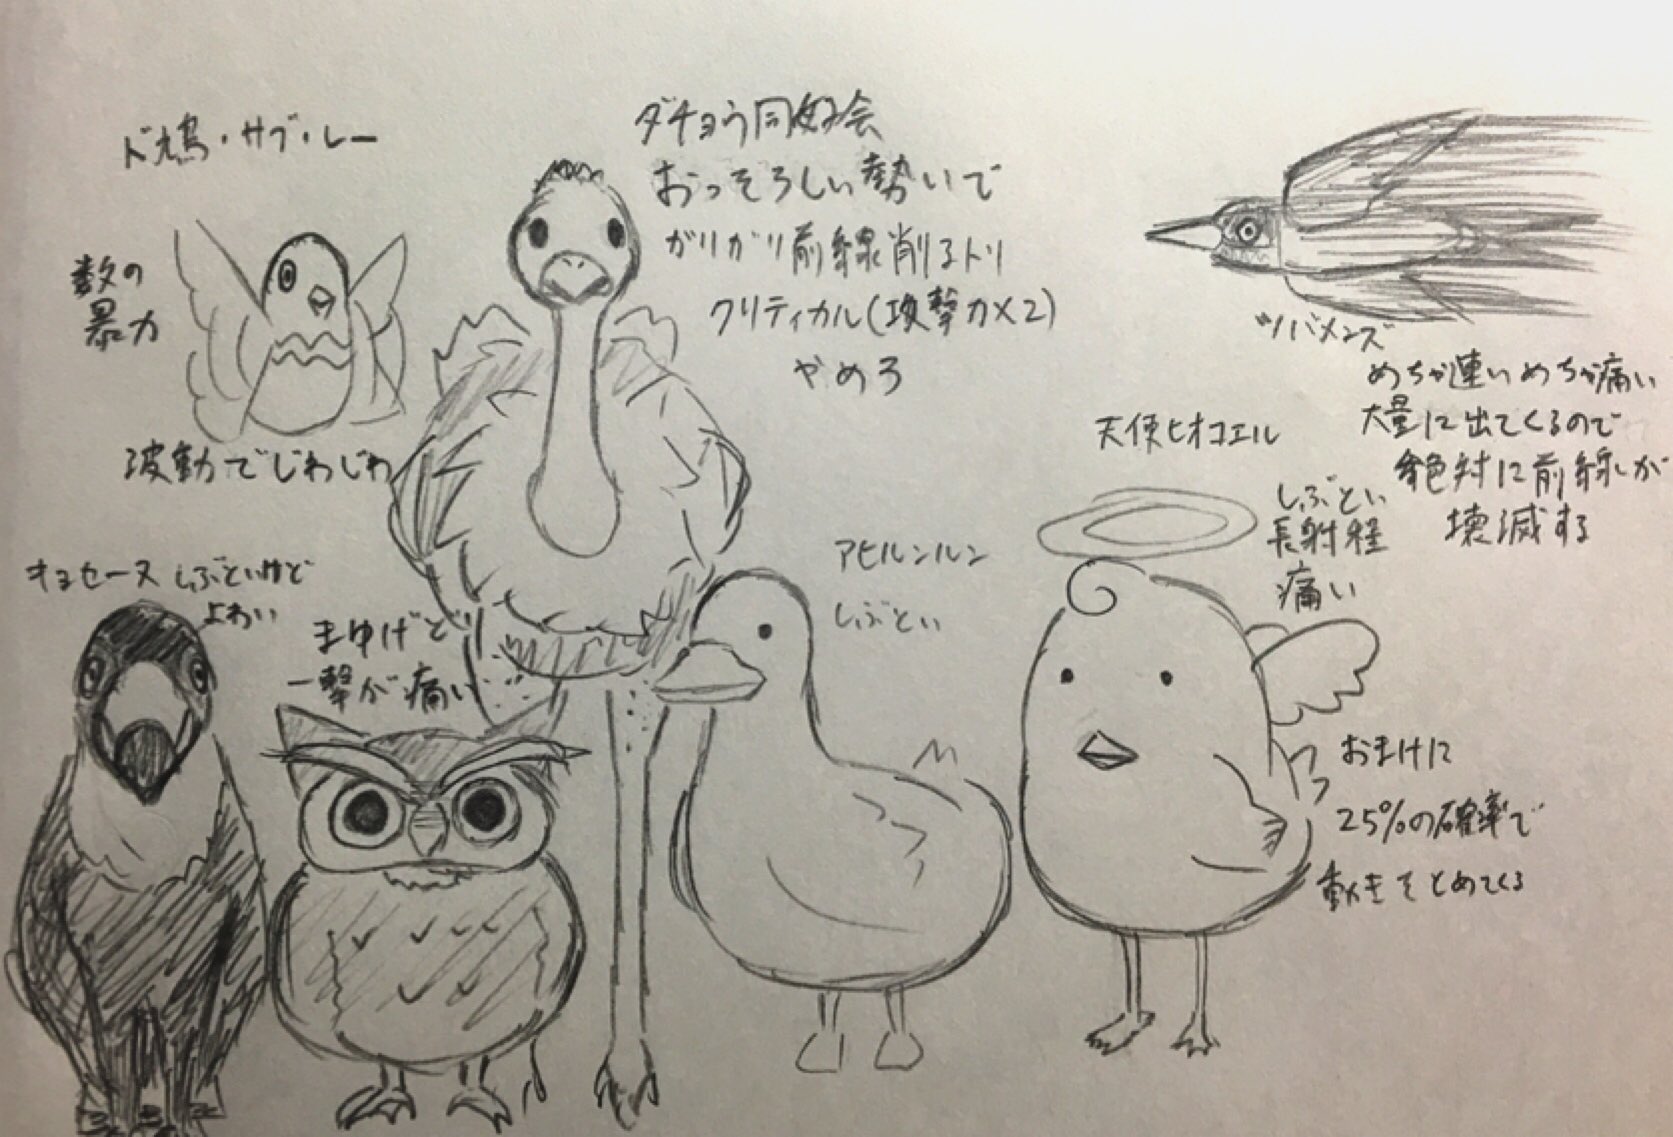 ド鳩・サブ・レー
数の
暴力
波動でじわじわ
ダチョウ同好会
おっそろしい勢いで
ガリガリ前線削るトリ
クリティカル(攻撃力×2)
やめろ
ツバメンズ
めちゃ速いめちゃ痛い
大量に出てくるので
絶対に前線が
壊滅する
天使ヒオコエル
しぶとい
長射程
痛い
おまけに
25%の確率で
動きをとめてくる
アヒルンルン
しぶとい
キョセーヌ しぶといけど
よわい
まゆげどり
一撃が痛い